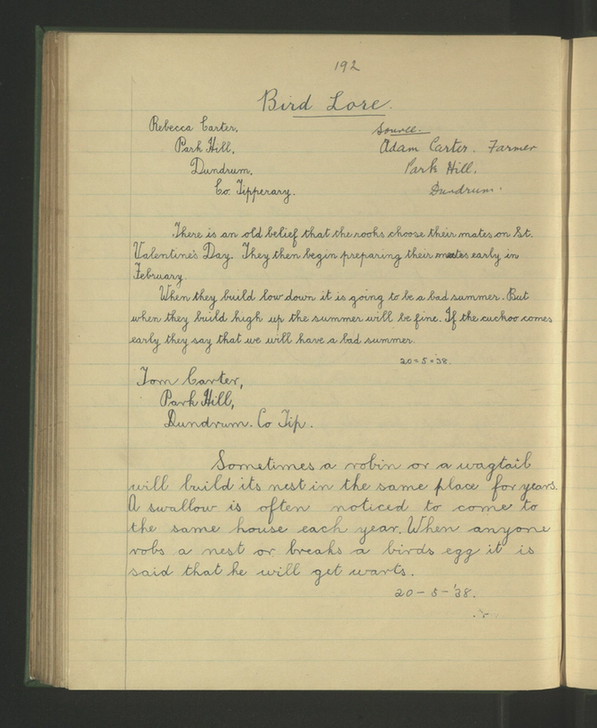 192
Bird Lore.
Rebecca Carter,
Park Hill,
Dundrum,
Co. Tipperary.
Source.
Adam Carter. Farmer
Park Hill.
Dundrum.
There is an old belief that the rooks choose their mates on St.
Valentine's Day. They then begin preparing their early in
February.
When they build low down it is going to be a bad summer. But
when they build high up the summer will be fine. If the cuckoo comes
early they say that we will have a bad summer.
20-5-38.
Tom Carter,
Park Hill,
Dundrum. Co Tip.
Sometimes a robin or a wagtail
will build its nest in the same place for years.
A swallow is often noticed to come to
the same house each year. When anyone
robs a nest or breaks a birds egg it is
said that he will get warts.
20-5-'38.